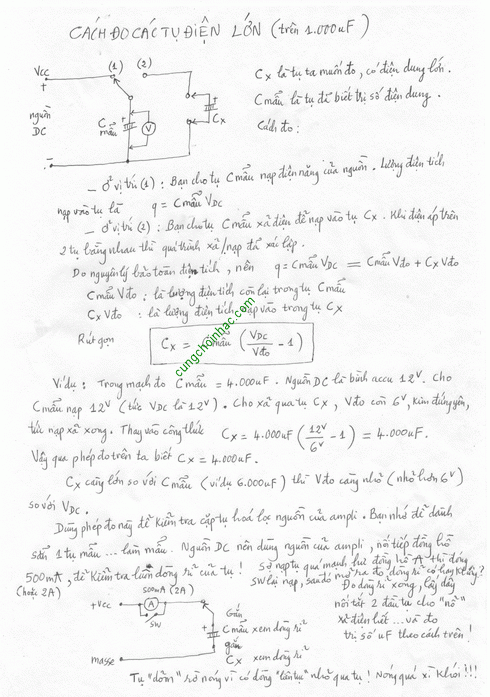 CÁCH ĐO CÁC TỤ ĐIỆN LỚN (trên 1.000uF)
Vcc
+
(1) (2)
nguồn
DC
C mẫu
+
V
+
Cx
-
Cx là tụ ta muốn đo, có điện dung lớn.
C mẫu là tụ đã biết trị số điện dung.
Cách đo:
- Ở vị trí (1): Bạn cho tụ C mẫu nạp điện năng của nguồn. Lượng điện tích
nạp vào tụ là q = C mẫu VDC
- Ở vị trí (2): Bạn cho tụ C mẫu xả điện để nạp vào tụ Cx. Khi điện áp trên
2 tụ bằng nhau thì quá trình xả/nạp đã xác lập.
Do nguyên lý bảo toàn điện tích, nên q = C mẫu VDC = C mẫu Vđo + Cx Vđo
C mẫu Vđo: là lượng điện tích còn lại trong tụ C mẫu
Cx Vđo: là lượng điện tích nạp vào trong tụ Cx
Rút gọn Cx = C mẫu (VDC/Vđo - 1)
cungchoinhac.com
Ví dụ: Trong mạch đo C mẫu = 4.000uF. Nguồn DC là bình accu 12V. Cho
C mẫu nạp 12V (tức VDC là 12V). Cho xả qua tụ Cx, Vđo còn 6V, kim đứng yên,
tức nạp xả xong. Thay vào công thức Cx = 4.000uF (12V/6V - 1) = 4.000uF.
Vậy qua phép đo trên ta biết Cx = 4.000uF.
Cx càng lớn so với C mẫu (ví dụ 6.000uF) thì Vđo càng nhỏ (nhỏ hơn 6V)
so với VDC.
Dùng phép đo này để kiểm tra cặp tụ hoá lọc nguồn của ampli. Bạn nhớ để dành
sẵn 1 tụ mẫu ... làm mẫu. Nguồn DC nên dùng nguồn của ampli, nối tiếp đồng hồ
500mA, để kiểm tra luôn dòng rỉ của tụ! Sợ nạp tụ quá mạnh hư đồng hồ A thì đóng
(hoặc 2A) SW lại nạp, sau đó mở ra đo dòng rỉ có hay không?
500mA (2A)
+Vcc
A
SW
Gắn
+ C mẫu xem dòng rỉ
gắn
Cx xem dòng rỉ
masse
Đo dòng rỉ xong, lấy dây
nối tắt 2 đầu tụ cho "nổ"
xì điện hết ... và đo
trị số uF theo cách trên!
Tụ "dỏm" sờ nóng vì có dòng "liên tục" nhỏ qua tụ! Nóng quá xì khói!!!